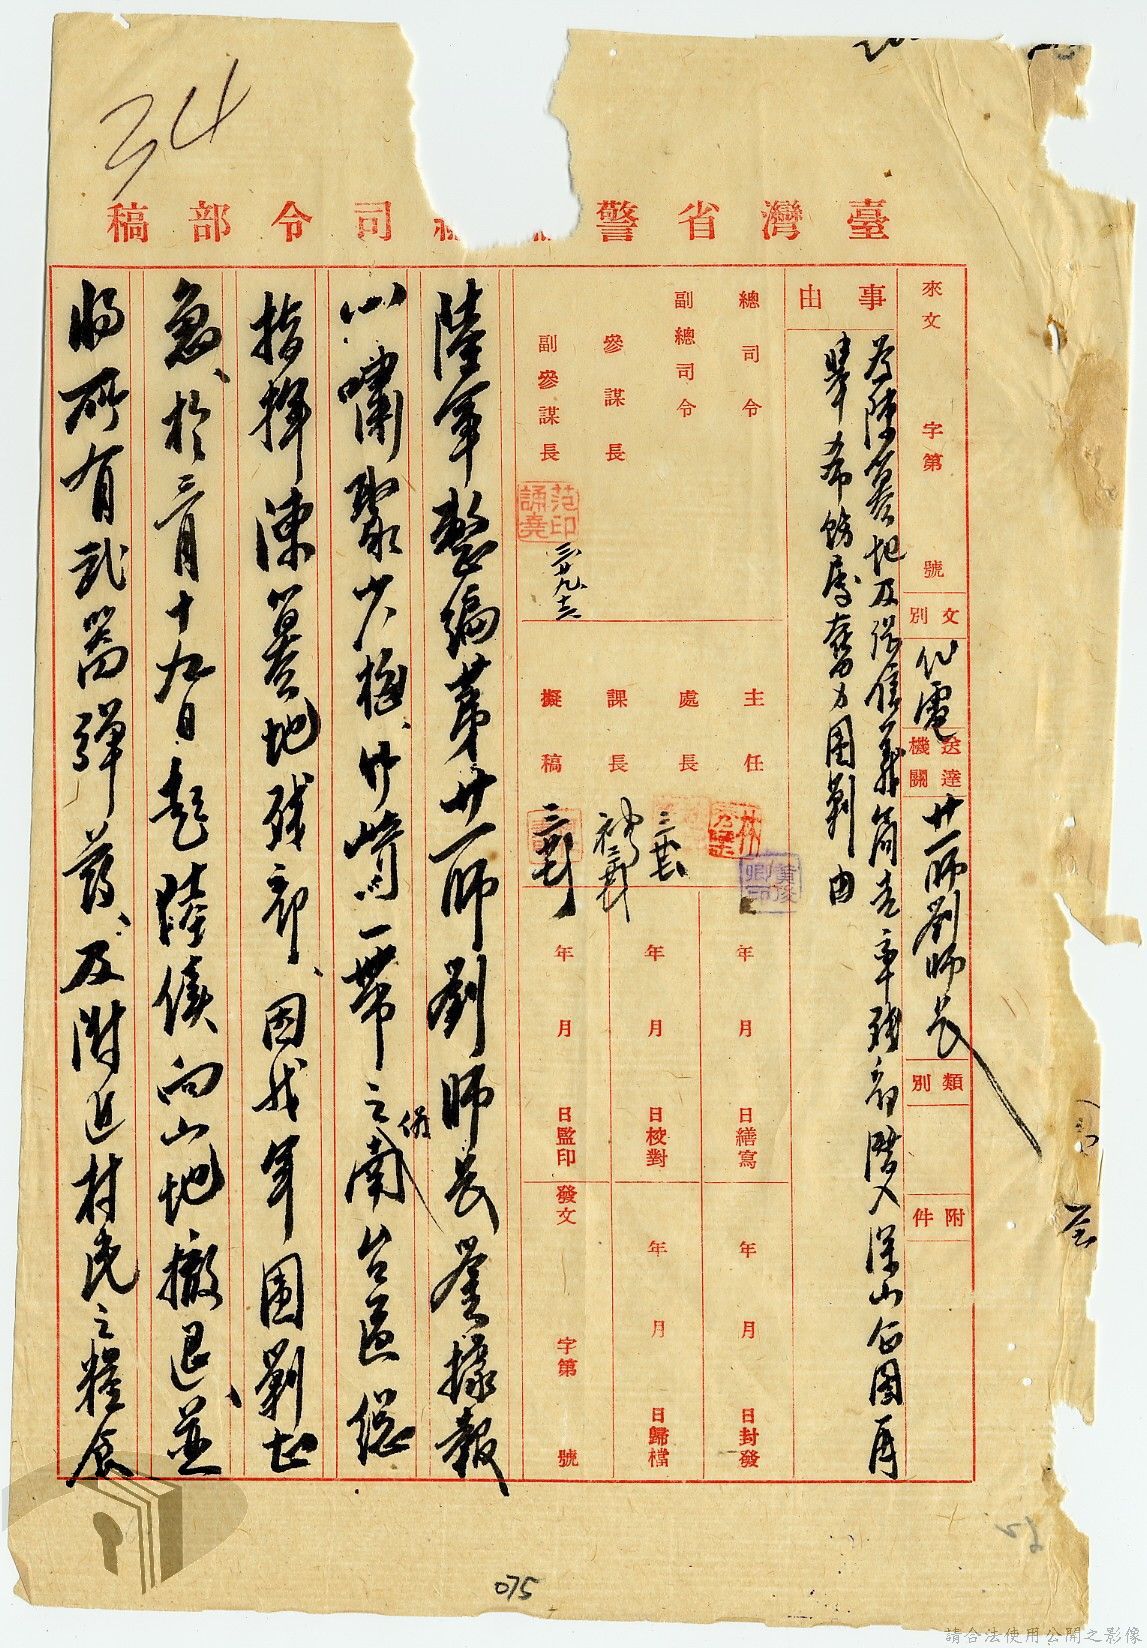 34
臺灣省警 總司令部稿
來文 字第 號
文別 代電
送達機關 廿一師劉師長
類別
附件
事由
為陳篡地及張信義簡吉率殘部潛入深山企圖再
舉希飭屬奮力圍剿由
總司令
副總司令
參謀長
副參謀長
范印誦堯
主任
處長
課長
擬稿
年 月 日繕寫
年 月 日校對
年 月 日監印
年 月 日封發
年 月 日歸檔
發文 字第 號
陸軍整編第廿一師劉師長鑒據報
小嘯聚少梅、竹崎一帶之偽南台區總
指揮陳篡地殘部、因我軍圍剿甚
急、於三月十九日起陸續向山地撤退、並
將所有武器彈葯、及附近村民之糧食
075
請合法使用公開之影像